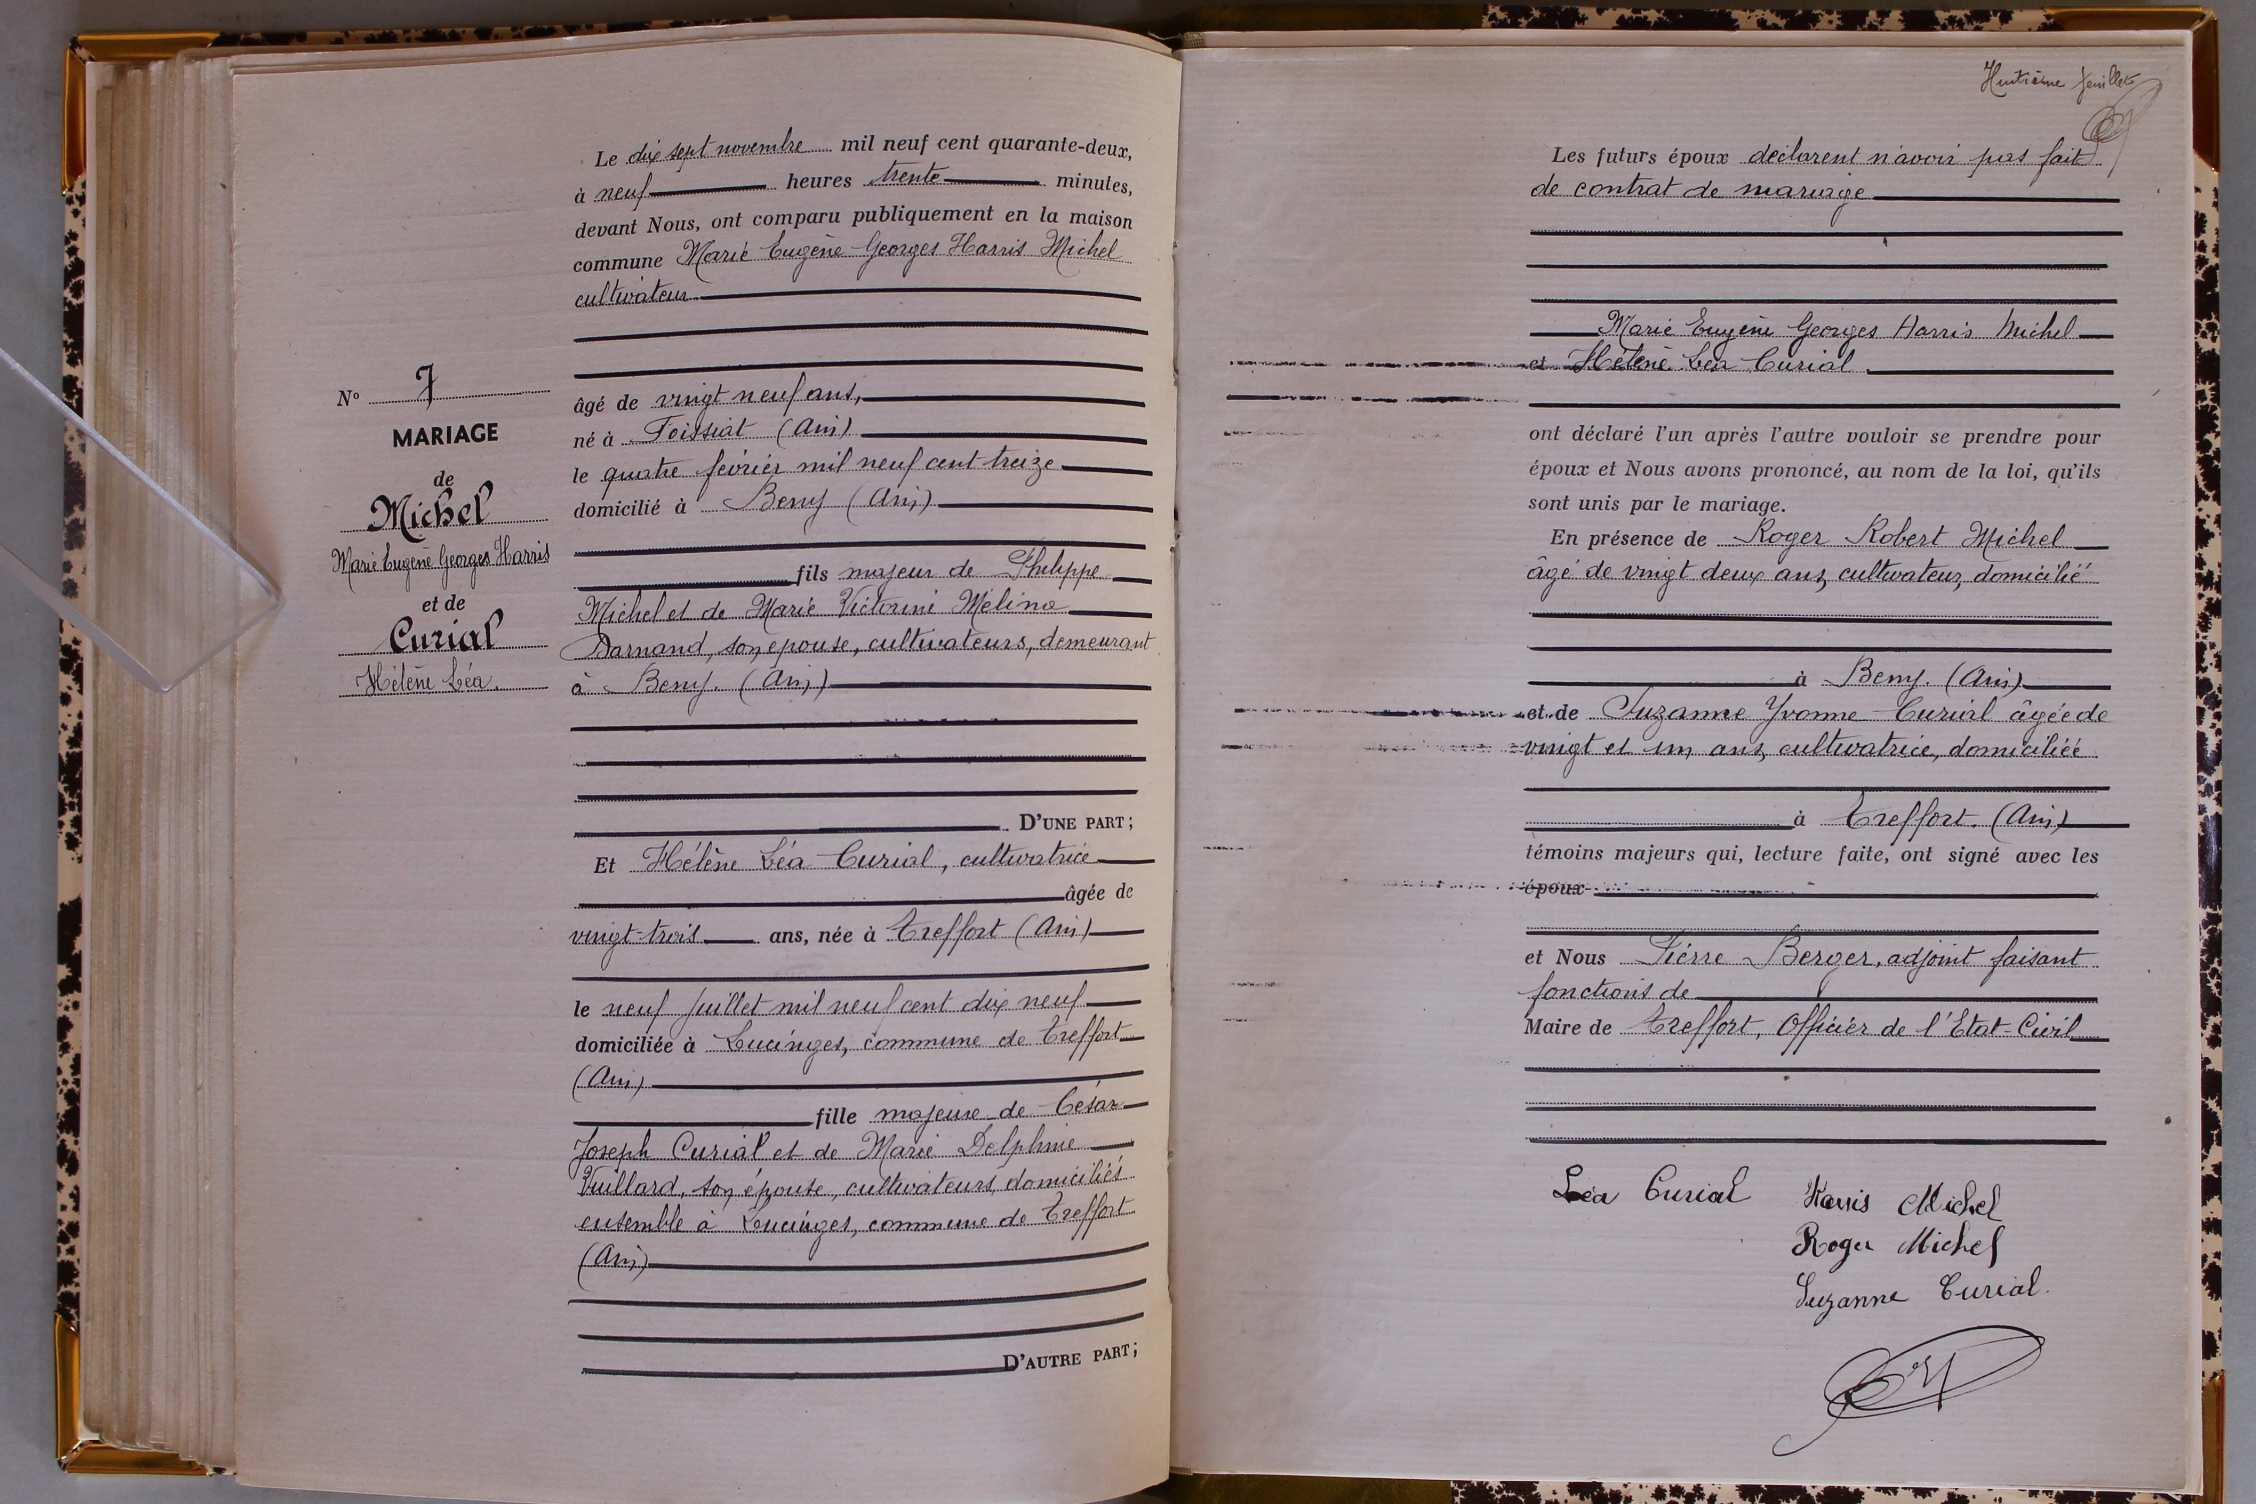 Le dix sept novembre mil neuf cent quarante-deux,
à neuf heures trente minutes,
devant Nous, ont comparu publiquement en la maison
commune Marie Eugène Georges Harris Michel
cultivateur
âgé de vingt neuf ans,
né à Foissiat (Ain)
le quatre février mil neuf cent treize
domicilié à Beny (Ain)
fils majeur de Philippe
Michel et de Marie Victorine Mélina
Darnand, son épouse, cultivateurs, demeurant
à Beny. (Ain)
D'UNE PART;
Et Hélène Léa Curial, cultivatrice
âgée de
vingt-trois ans, née à Treffort (Ain)
le neuf Juillet mil neuf cent dix neuf
domiciliée à Lucinges, commune de Treffort
(Ain)
fille majeure de César
Joseph Curial et de Marie Delphine
Vuillard, son épouse, cultivateurs, domiciliés
ensemble à Lucinges, commune de Treffort
(Ain)
D'AUTRE PART;
No 7
MARIAGE
de
Michel
Marie Eugène Georges Harris
et de
Curial
Hélène Léa.
Huitième feuillet
Les futurs époux déclarent n'avoir pas fait
de contrat de mariage
Marie Eugène Georges Harris Michel
et Hélène Léa Curial
ont déclaré l'un après l'autre vouloir se prendre pour
époux et Nous avons prononcé, au nom de la loi, qu'ils
sont unis par le mariage.
En présence de Roger Robert Michel
âgé de vingt deux ans, cultivateur, domicilié
à Beny. (Ain)
et de Suzanne Yvonne Curial âgée de
vingt et un ans, cultivatrice, domiciliée
à Treffort. (Ain)
témoins majeurs qui, lecture faite, ont signé avec les
époux
et Nous Pierre Berger, adjoint faisant
fonctions de
Maire de Treffort, Officier de l'Etat-Civil
Léa Curial Harris Michel
Roger Michel
Suzanne Curial.